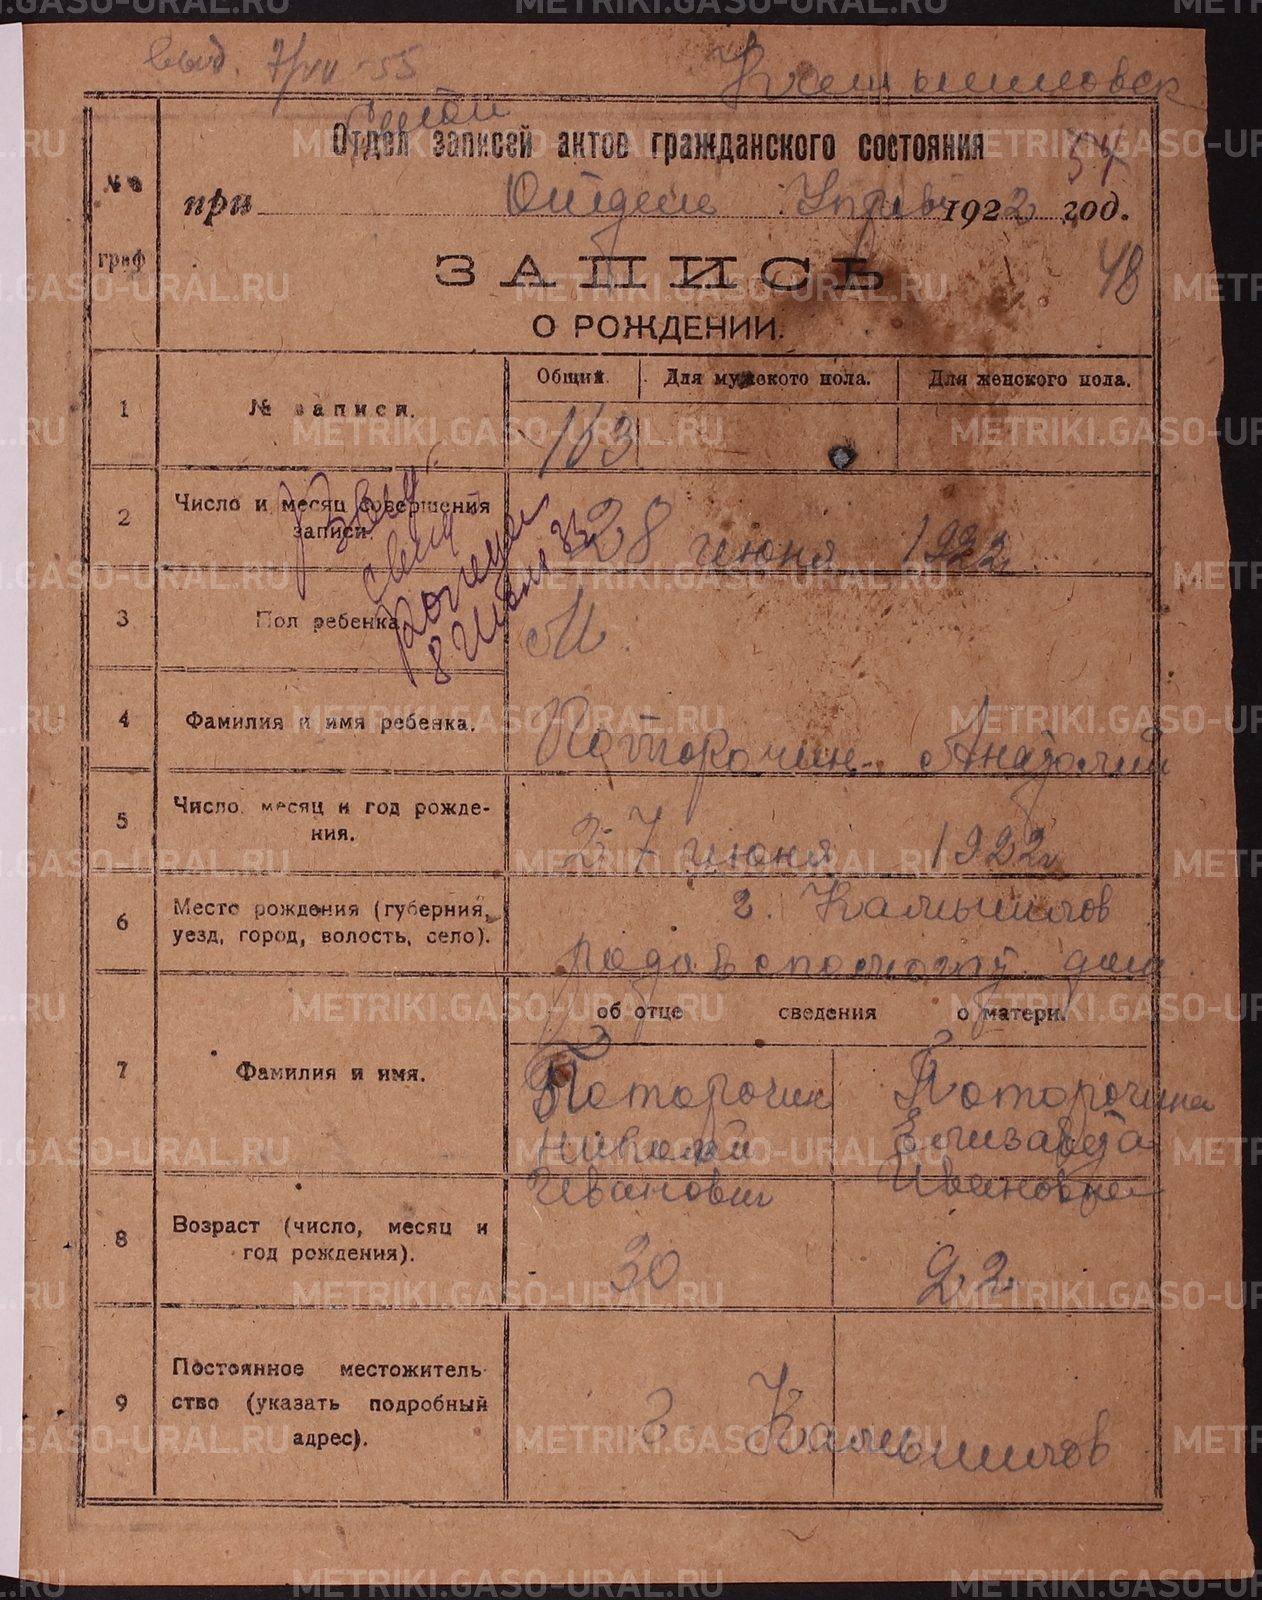 выд. 7/VII-55
Камышловск
Отдел записей актов гражданского состояния
54
№№
граф
при Отделе Управ 1922 год.
48
ЗАПИСЬ
О РОЖДЕНИИ.
1
№ записи.
Общий. Для мужского пола. Для женского пола.
103
2
Число и месяц совершения
записи.
28 июня 1922
3
Пол ребенка.
М.
4
Фамилия и имя ребенка.
Поторочин Анатолий
5
Число, месяц и год рожде-
ния.
27 июня 1922г
6
Место рождения (губерния,
уезд, город, волость, село).
г. Камышлов
дом
об отце сведения о матери.
7
Фамилия и имя.
Поторочин
Николай
Иванович
Поторочина
Елизавета
Ивановна
8
Возраст (число, месяц и
год рождения).
30
22
9
Постоянное местожитель-
ство (указать подробный
адрес).
г. Камышлов
METRIKI.GASO-URAL.RU